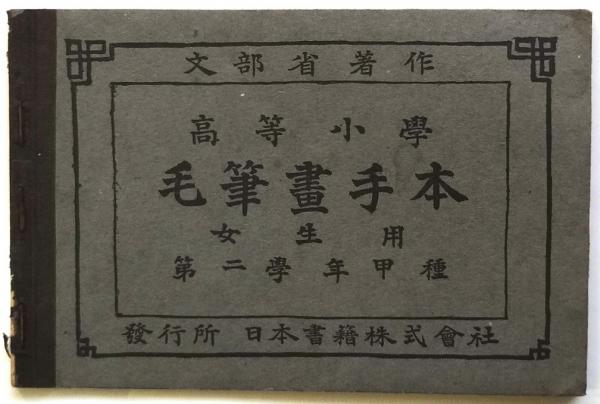 文部省著作
高等小學
毛筆畫手本
女生用
第二學年甲種
發行所 日本書籍株式會社